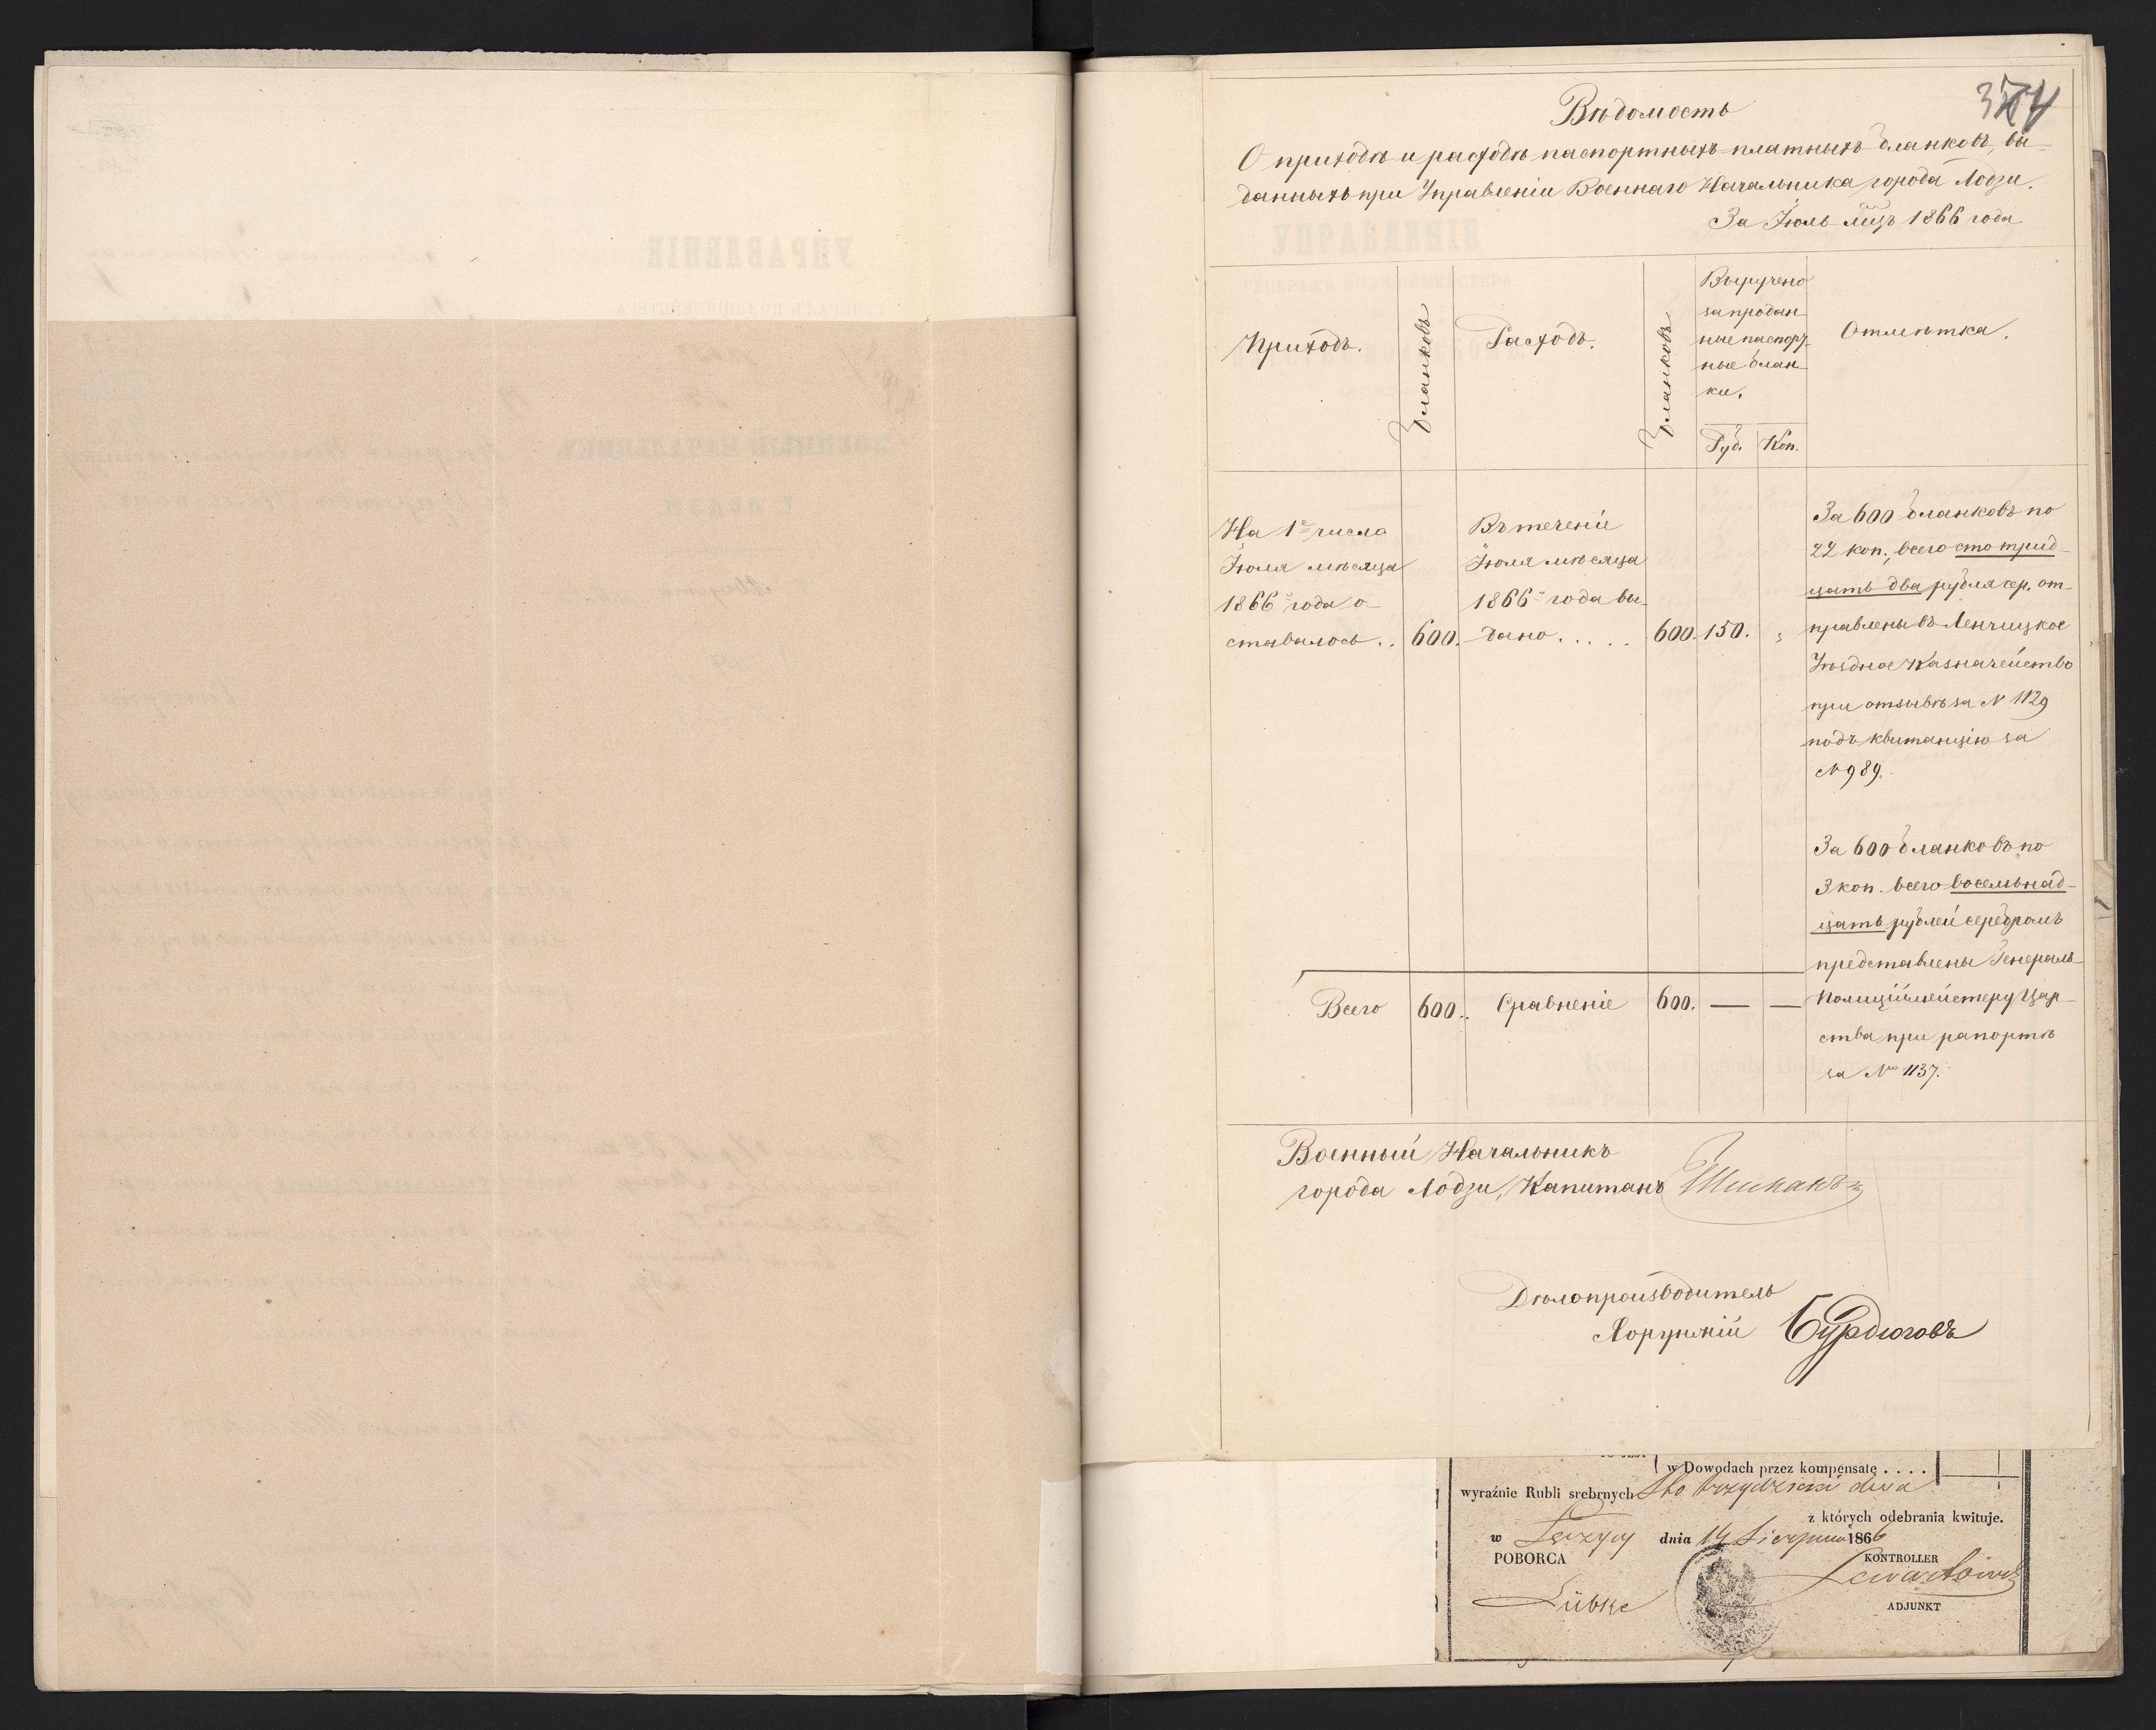 Вѣдомость
О приходѣ и расходѣ паспортныхъ платныхъ бланковъ, вы-
данныхъ при Управленіи Военнаго Начальника города Лодзи.
За Іюль мцъ 1866 года
Приходъ.
Бланковъ
Расходъ.
Бланковъ
Выручено
за продан
ные паспорт
ные блан
ки.
Руб. Коп.
Отмѣтка.
На 1е число
Іюля мѣсяца
1866 года о-
ставалось . . 600.
Въ теченіе
Іюля мѣсяца
1866 года вы-
дано . . . . . 600. 150. "
За 600 бланковъ по
22 коп., всего сто трид-
цать два рубля сер. от-
правлены въ Ленчицкое
Уѣздное Казначейство
при отзывѣ за N 1129
подъ квитанцію за
N 989.
За 600 бланковъ по
3 коп. всего восемьнад-
цать рублей серебромъ
представлены Генералъ-
Полиціймейстеру Цар-
ства при рапортѣ
за № 1137.
Всего 600. Сравненіе 600. — —
Военный Начальникъ
города Лодзи, Капитанъ
Дѣлопроизводитель
Хорунжій Бурдюговъ
w Dowodach przez kompensatę . . . .
wyraźnie Rubli srebrnych Sto trzydzieści dwa
z których odebrania kwituje.
w Łęczycy dnia 14 Sierpnia 1866
POBORCA
KONTROLLER
Lübke
ADJUNKT
УПРАВЛЕНІЕ